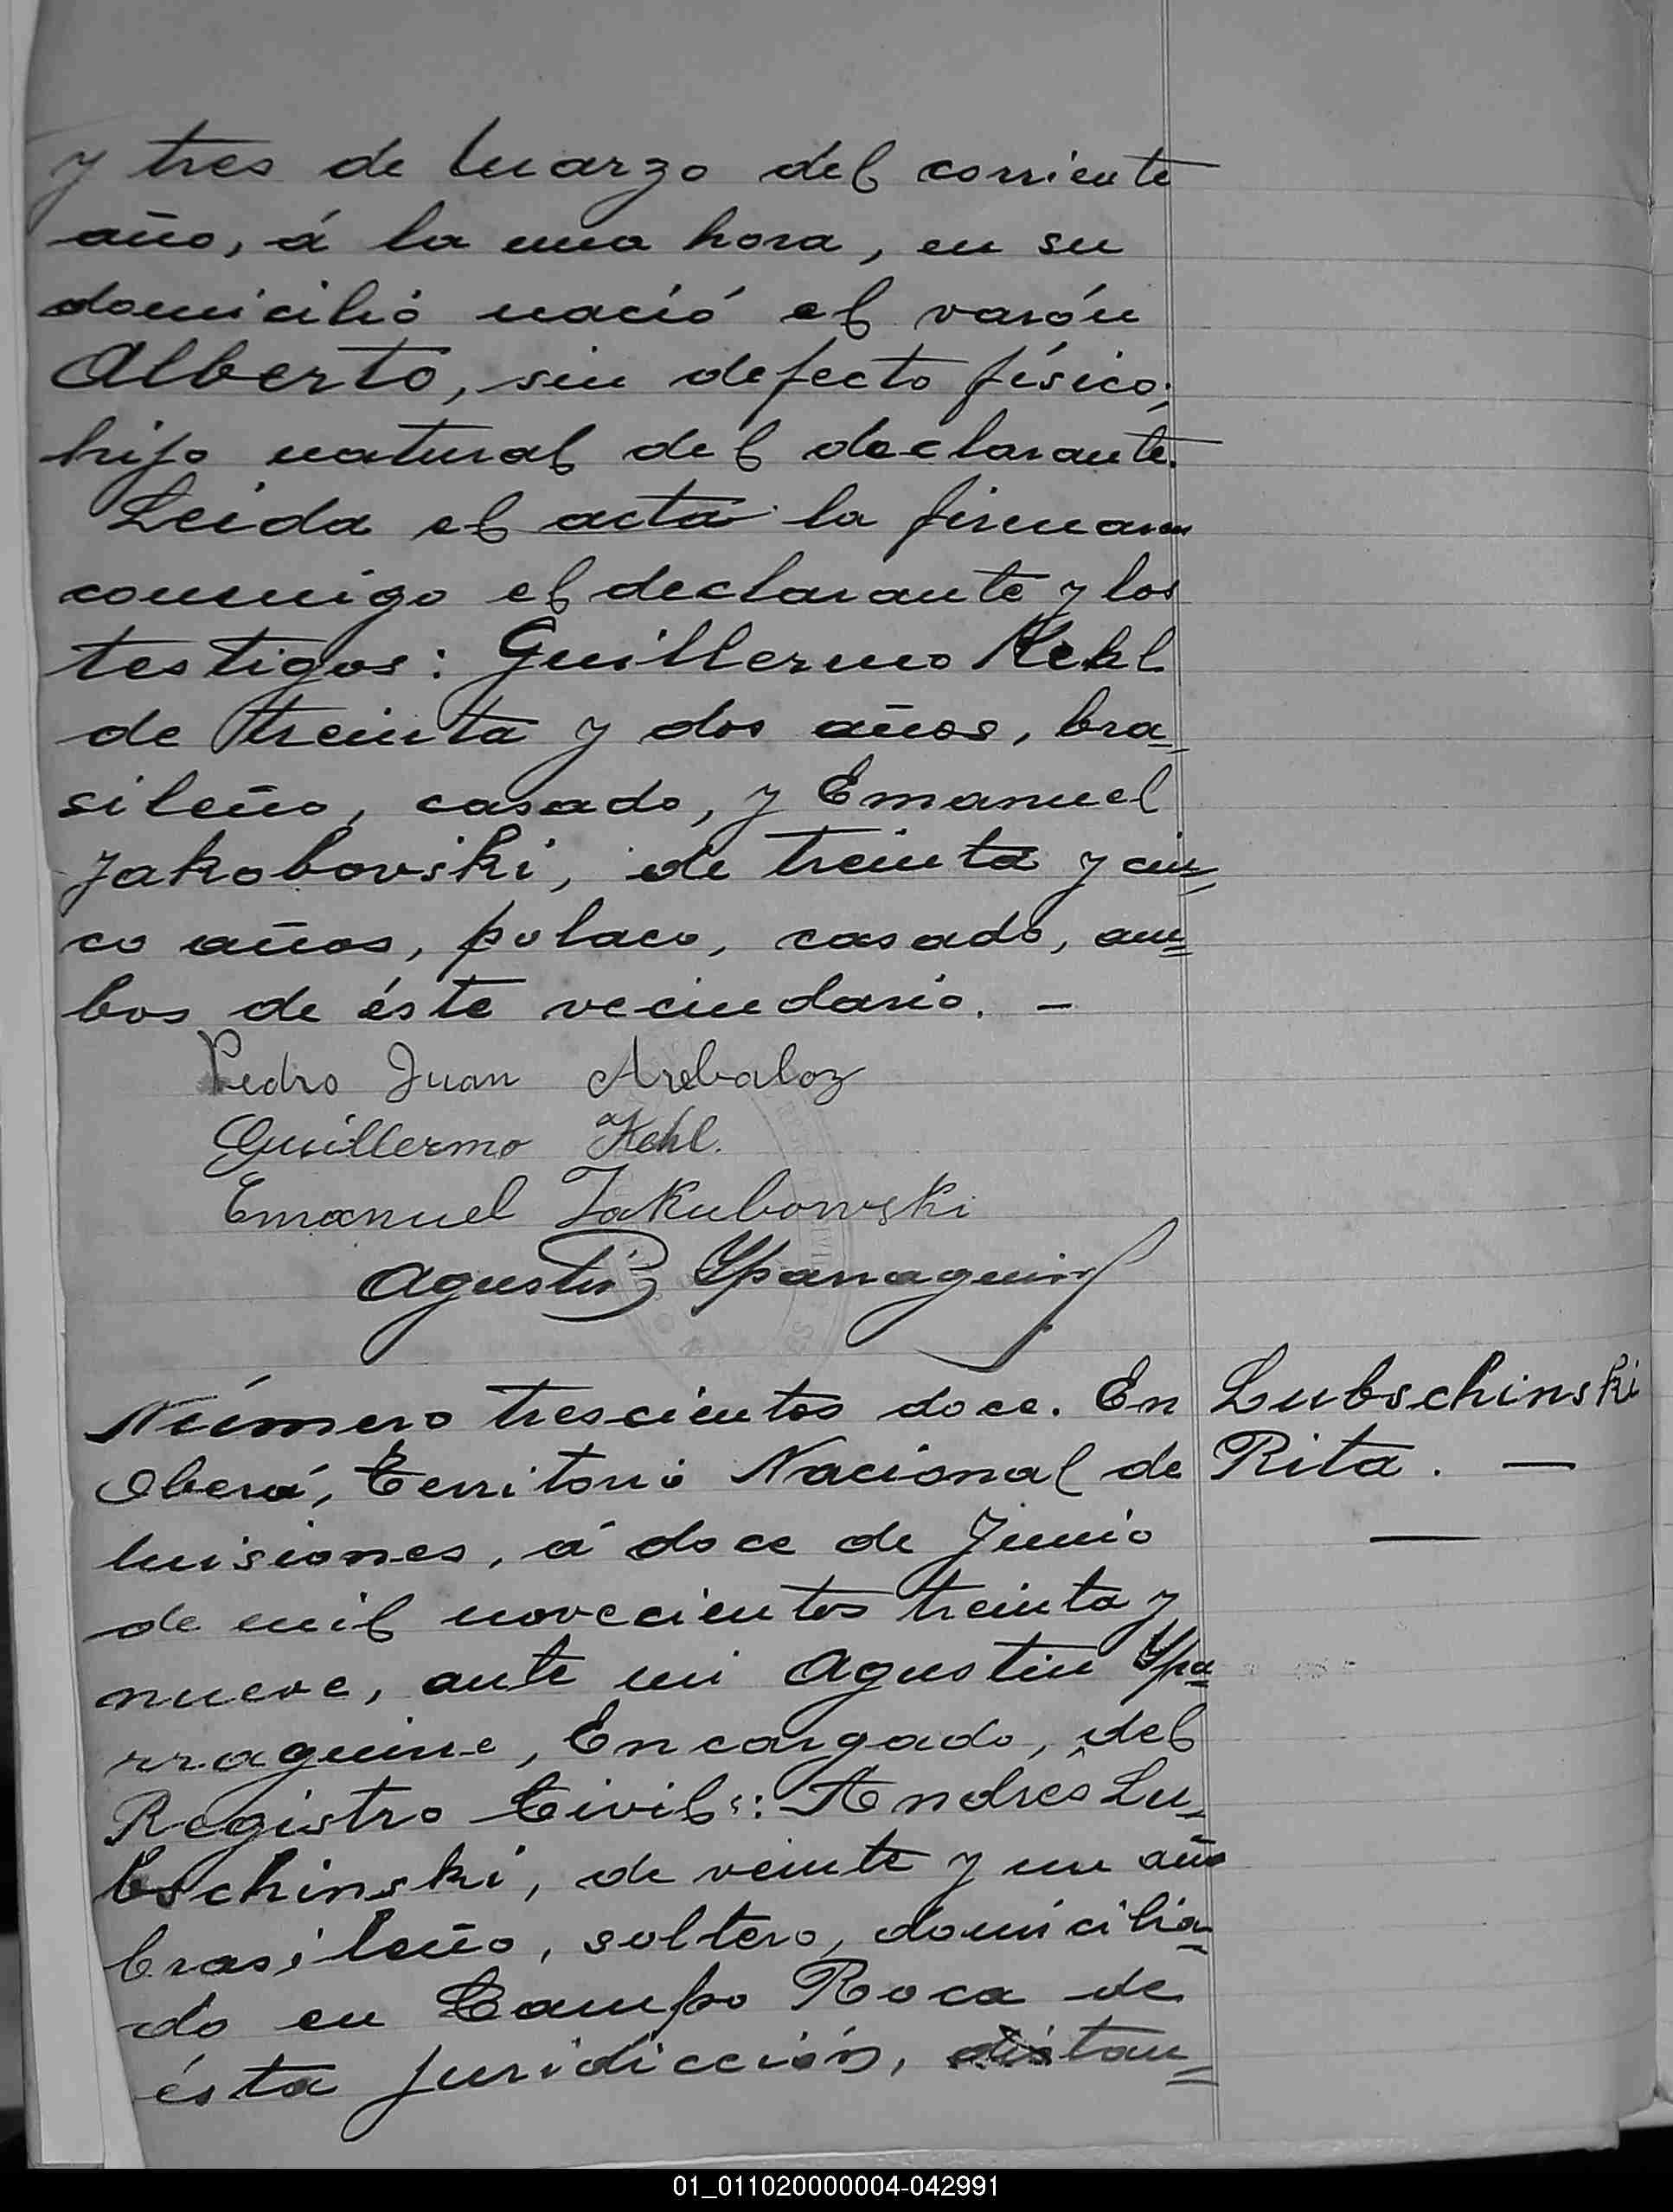 y tres de Marzo del corriente
año, á la una hora, en su
domicilio nació el varón
Alberto, sin defecto físico;
hijo natural del declarante.
Leida el acta la firmaron
conmigo el declarante y los
testigos: Guillermo Kehl
de treinta y dos años, bra=
sileño, casado, y Emanuel
Jakobovski, de treinta y cin=
co años, polaco, casado, am=
bos de éste vecindario. —
Pedro Juan
Guillermo Kehl.
Emanuel Jakubowski
Agustin Yparraguirre
Número trescientos doce. En
Oberá, Territorio Nacional de
Misiones, á doce de Junio
de mil novecientos treinta y
nueve, ante mi Agustin Ypa=
rraguirre, Encargado, del
Registro Civil: Andrés Lu=
bschinski, de veinte y un años
brasileño, soltero, domicilia=
do en Campo Roca de
ésta juridicción, distan=
Lubschinski
Rita. —
01_011020000004-042991